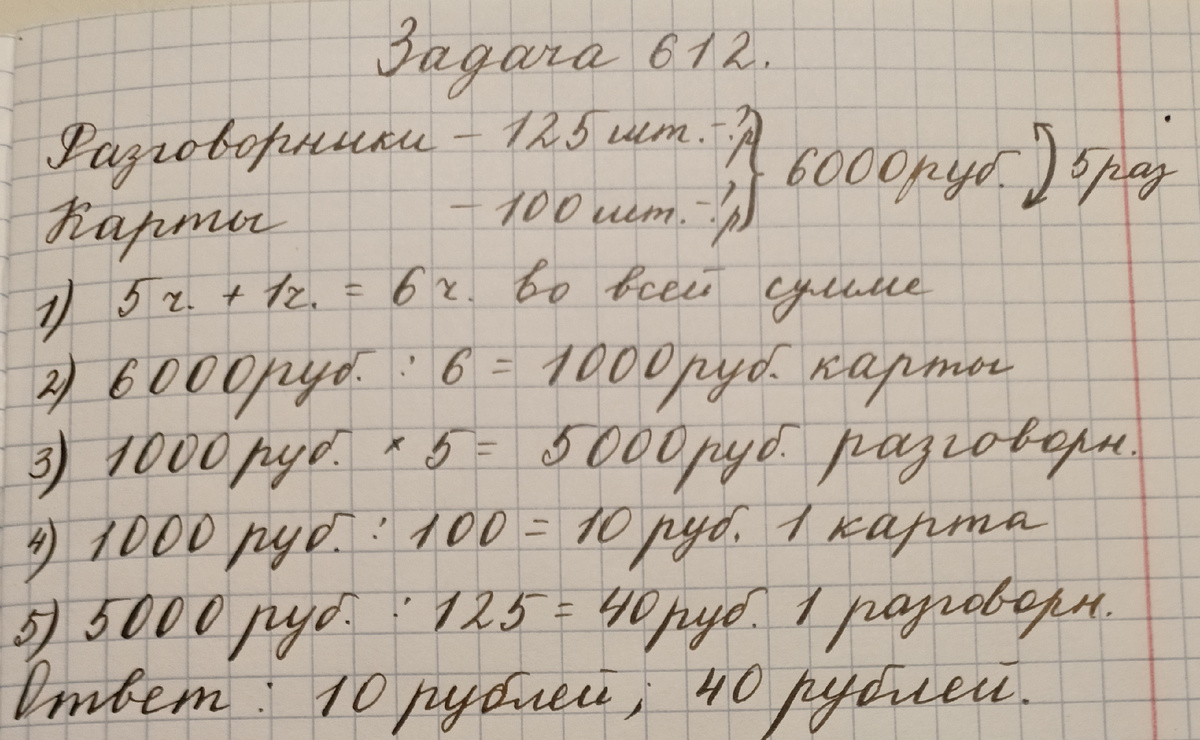 Задача 612.
Разговорники – 125 шт. – ?р } 6000 руб. 5 раз
Карты – 100 шт. – ?р
1) 5 ч. + 1 ч. = 6 ч. во всей сумме
2) 6000 руб. : 6 = 1000 руб. карты
3) 1000 руб. × 5 = 5000 руб. разговорн.
4) 1000 руб. : 100 = 10 руб. 1 карта
5) 5000 руб. : 125 = 40 руб. 1 разговорн.
Ответ : 10 рублей; 40 рублей.